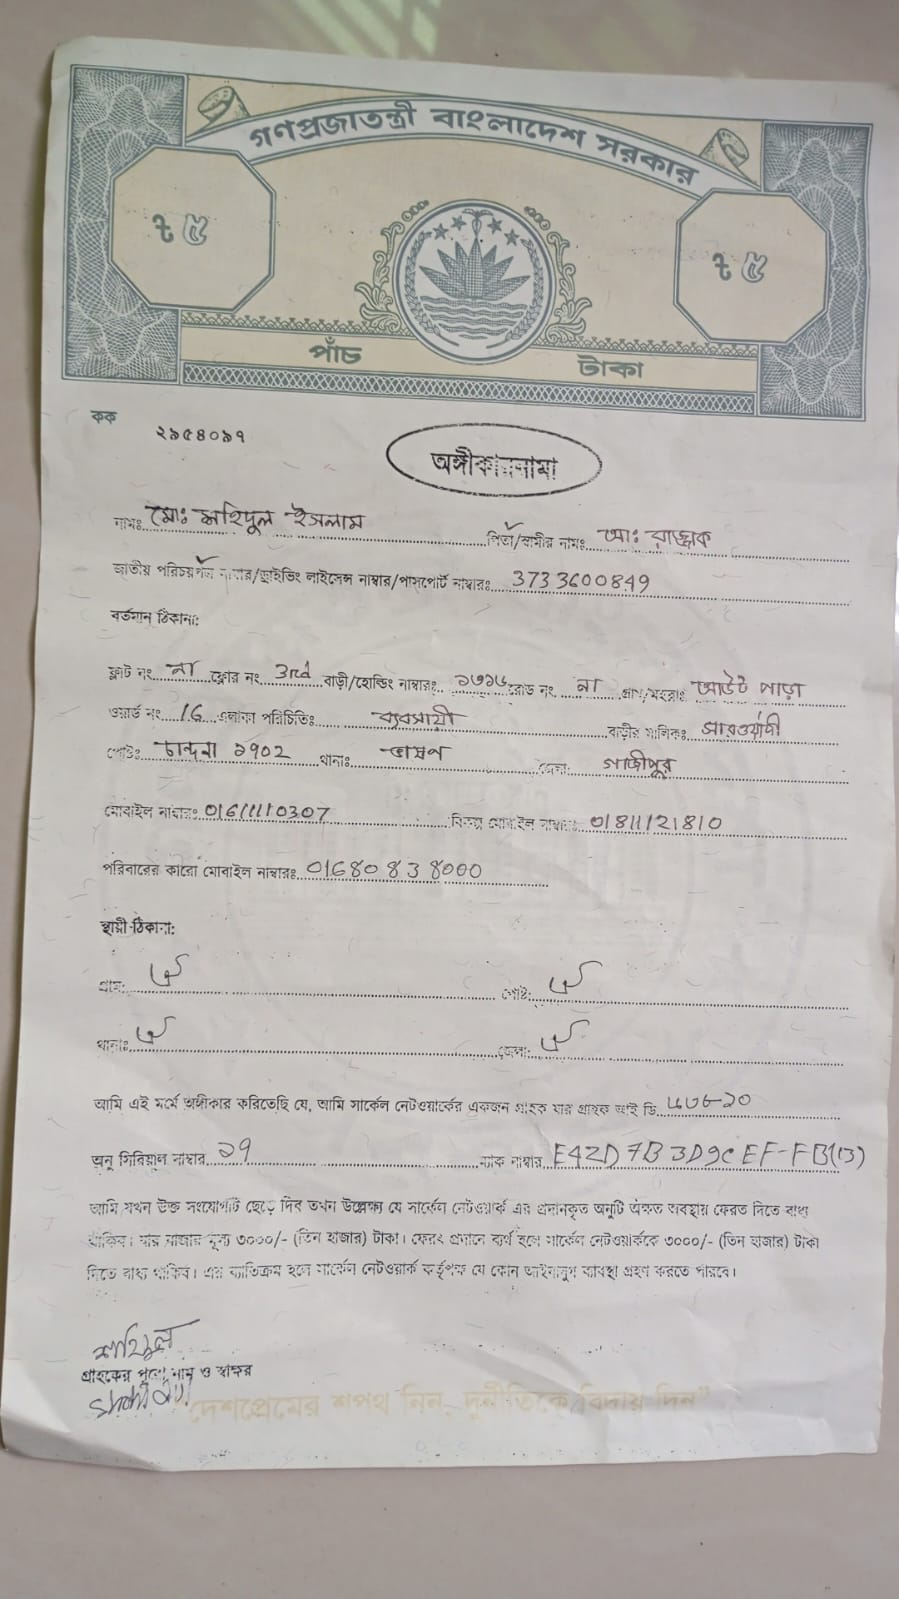 গণপ্রজাতন্ত্রী বাংলাদেশ সরকার
৳ ৫ ৳ ৫
পাঁচ টাকা
কক
২৯৫৪০৯৭
অঙ্গীকারনামা
নামঃ মোঃ শহিদুল ইসলাম পিতা/স্বামীর নামঃ আঃ রাজ্জাক
জাতীয় পরিচয়পত্র নাম্বার/ড্রাইভিং লাইসেন্স নাম্বার/পাসপোর্ট নাম্বারঃ 3733600849
বর্তমান ঠিকানা:
ফ্লাট নং না ফ্লোর নং 3rd বাড়ী/হোল্ডিং নাম্বারঃ রোড নং না গ্রাম/মহল্লাঃ আউট পাড়া
ওয়ার্ড নং 16 এলাকা পরিচিতিঃ ব্যবসায়ী বাড়ীর মালিকঃ সারওয়ার্দী
পোষ্টঃ চান্দনা ১৭০২ থানাঃ বাসন জেলা গাজীপুর
মোবাইল নাম্বারঃ 01611110307 বিকল্প মোবাইল নাম্বারঃ 01811121810
পরিবারের কারো মোবাইল নাম্বারঃ 01680838000
স্থায়ী ঠিকানা:
গ্রাম: ঐ পোষ্ট: ঐ
থানাঃ ঐ জেলা: ঐ
আমি এই মর্মে অঙ্গীকার করিতেছি যে, আমি সার্কেল নেটওয়ার্কের একজন গ্রাহক যার গ্রাহক আই ডি
অনু সিরিয়াল নাম্বার ১৭ ম্যাক নাম্বার E42D7B3D9CEF-FB(13)
আমি যখন উক্ত সংযোগটি ছেড়ে দিব তখন উল্লেখ্য যে সার্কেল নেটওয়ার্ক এর প্রদানকৃত অনুটি অক্ষত অবস্থায় ফেরত দিতে বাধ্য
থাকিব। যার বাজার মূল্য ৩০০০/- (তিন হাজার) টাকা। ফেরৎ প্রদানে ব্যর্থ হলে সার্কেল নেটওয়ার্ককে ৩০০০/- (তিন হাজার) টাকা
দিতে বাধ্য থাকিব। এর ব্যতিক্রম হলে সার্কেল নেটওয়ার্ক কর্তৃপক্ষ যে কোন আইনানুগ ব্যবস্থা গ্রহণ করতে পারবে।
শহিদুল
গ্রাহকের পুরো নাম ও স্বাক্ষর
Shahidul
"দেশপ্রেমের শপথ নিন, দুর্নীতিকে বিদায় দিন"